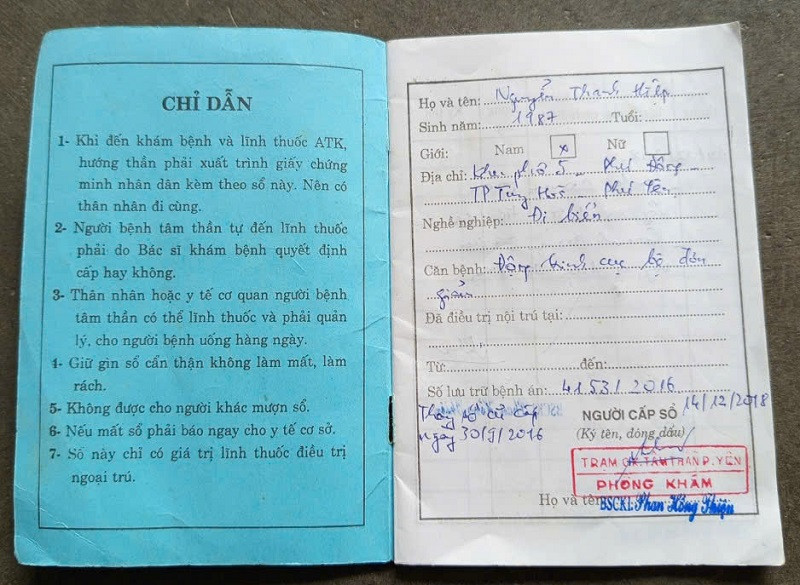 CHỈ DẪN
1- Khi đến khám bệnh và lĩnh thuốc ATK,
hướng thần phải xuất trình giấy chứng
minh nhân dân kèm theo sổ này. Nên có
thân nhân đi cùng.
2- Người bệnh tâm thần tự đến lĩnh thuốc
phải do Bác sĩ khám bệnh quyết định
cấp hay không.
3- Thân nhân hoặc y tế cơ quan người bệnh
tâm thần có thể lĩnh thuốc và phải quản
lý, cho người bệnh uống hàng ngày.
4- Giữ gìn sổ cẩn thận không làm mất, làm
rách.
5- Không được cho người khác mượn sổ.
6- Nếu mất sổ phải báo ngay cho y tế cơ sở.
7- Sổ này chỉ có giá trị lĩnh thuốc điều trị
ngoại trú.
Họ và tên: Nguyễn Thanh Hiệp
Sinh năm: 1987 Tuổi:
Giới: Nam x Nữ
Địa chỉ: Khu phố 5 - Phú Đông -
TP Tuy Hoà - Phú Yên
Nghề nghiệp: Đi biển
Căn bệnh: Động kinh cục bộ đơn
giản
Đã điều trị nội trú tại:
Từ: đến:
Số lưu trữ bệnh án: 4153/2016
Thay sổ cũ cấp
ngày 30/9/2016
14/12/2018
NGƯỜI CẤP SỔ
(Ký tên, đóng dấu)
TRẠM CK.TÂM THẦN P.YÊN
PHÒNG KHÁM
Họ và tên:
BSCKI. Phan Hồng Thiện